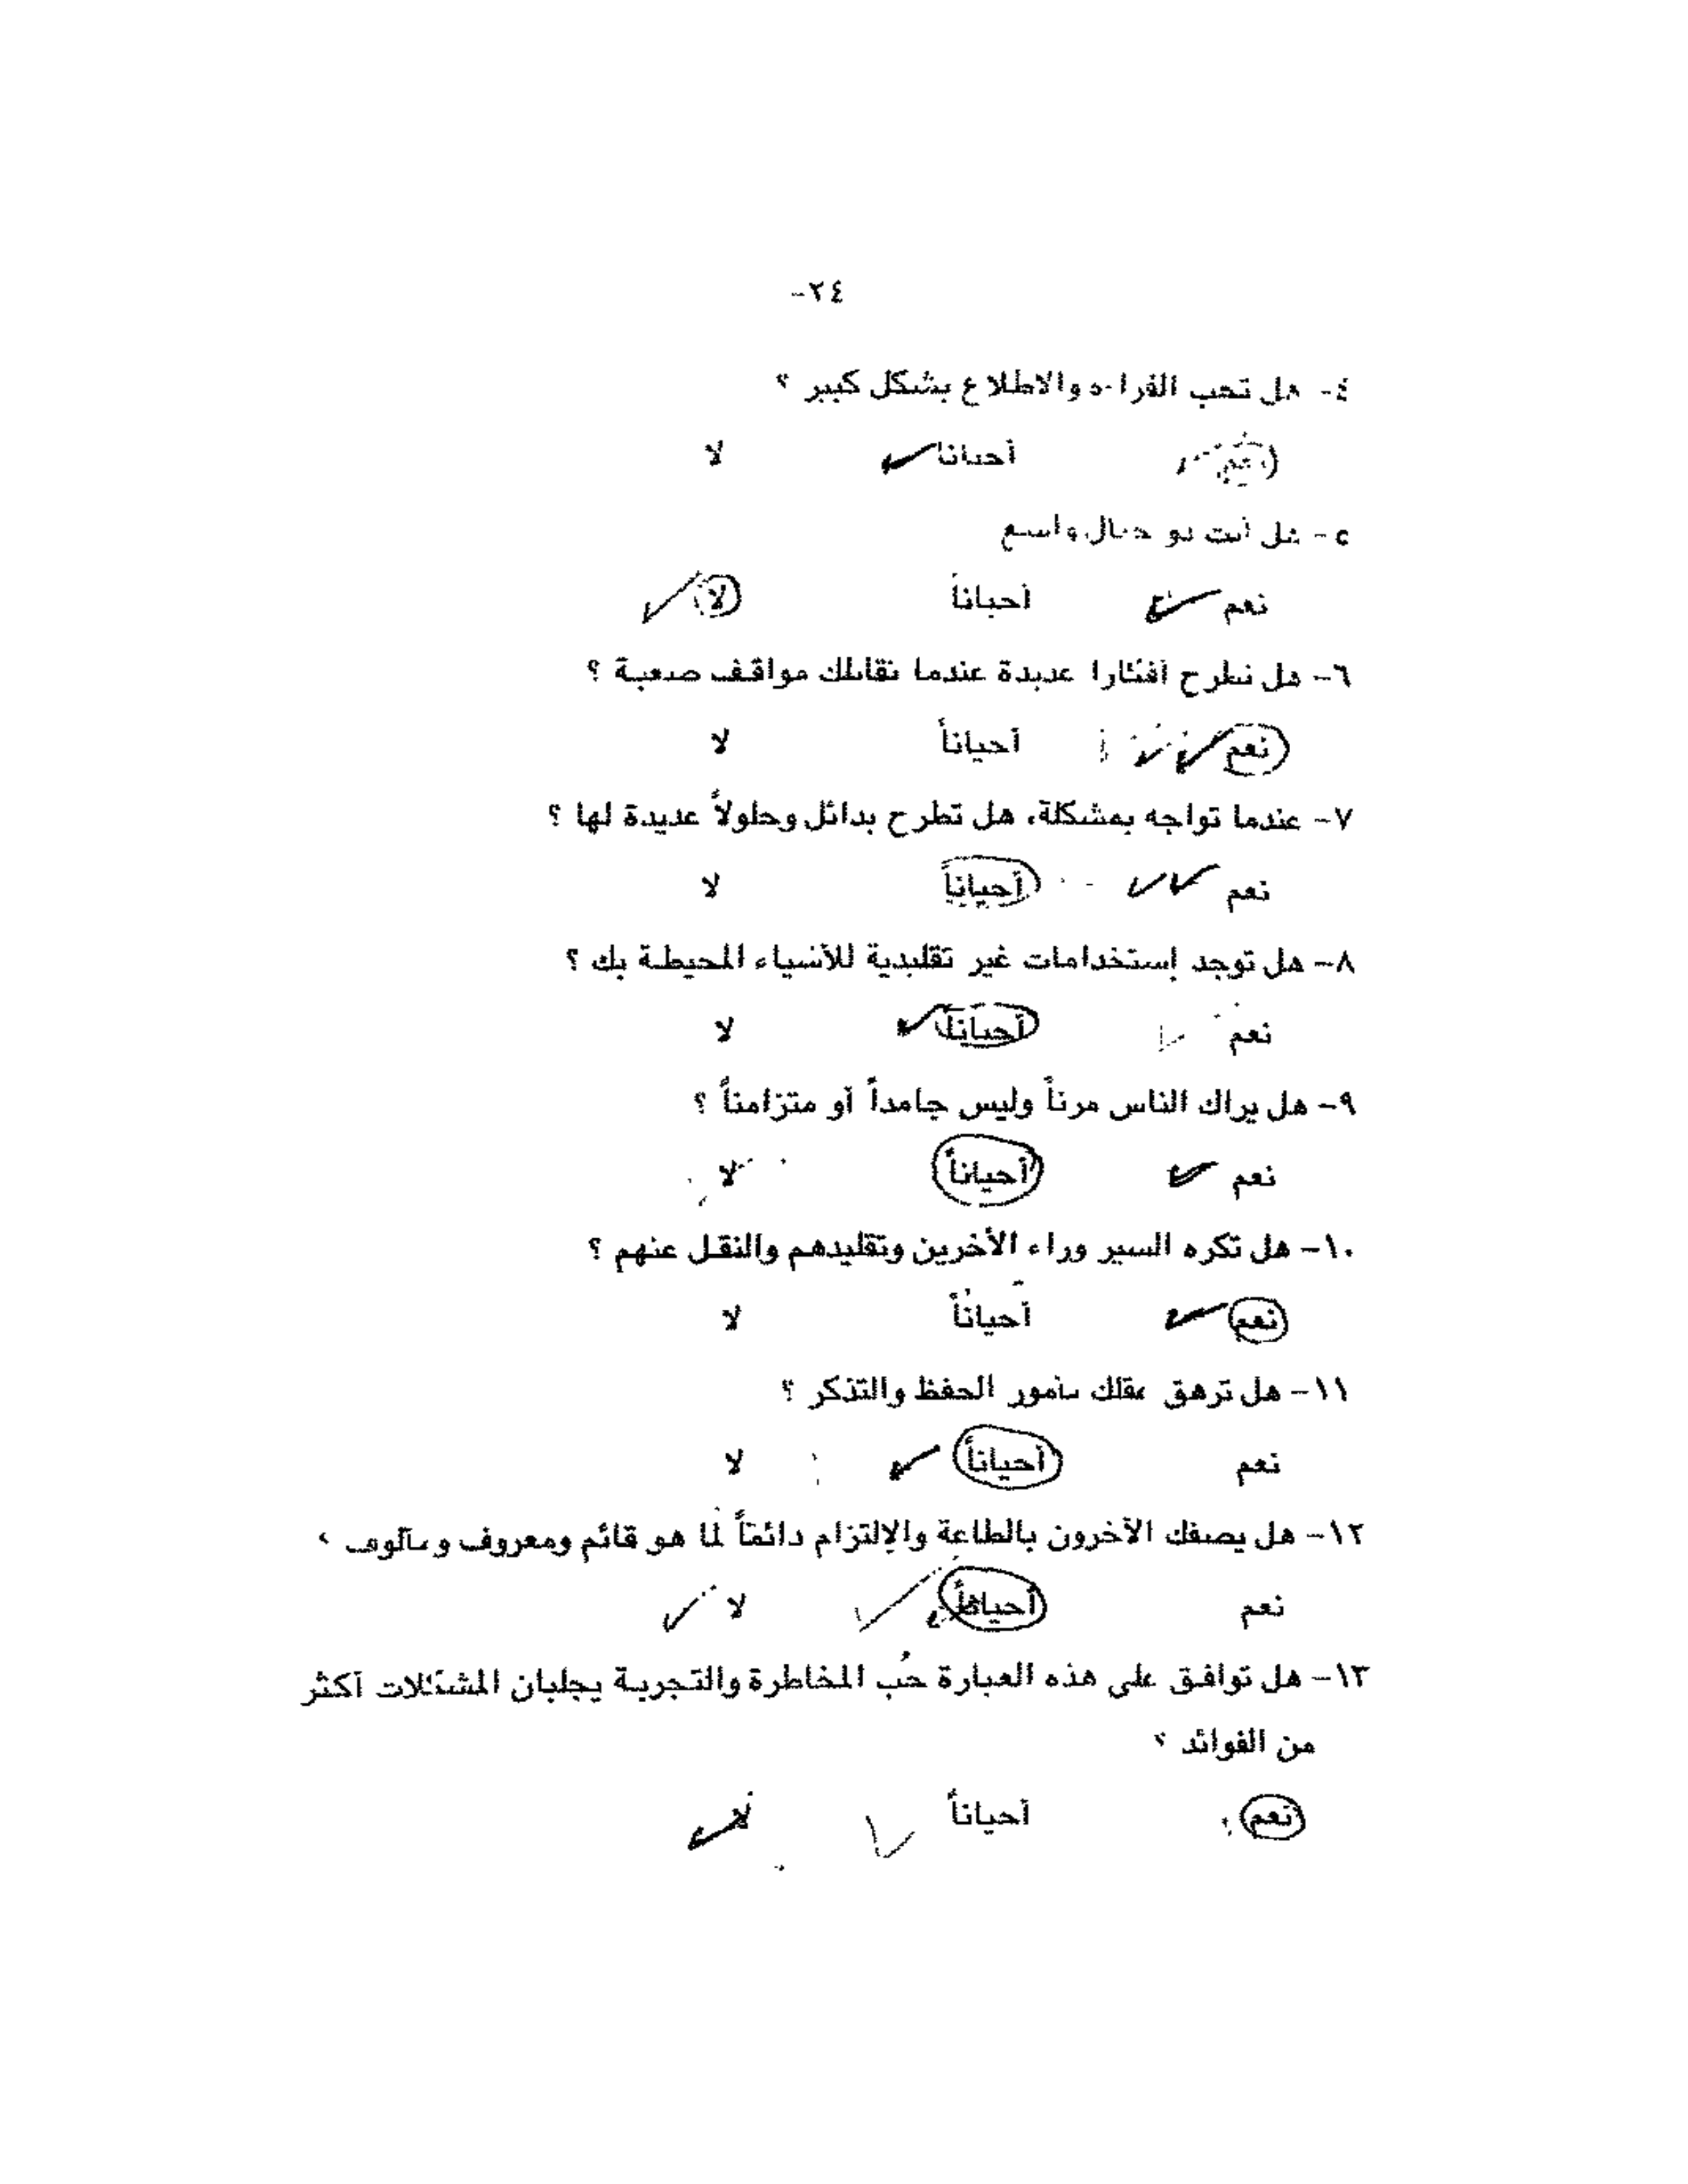 -٢٤
٤- هل تحب القراءة والاطلاع بشكل كبير ؟
نعم أحيانا لا
٥- هل أنت ذو خيال واسع
نعم أحياناً لا
٦- هل تطرح أفكارا عديدة عندما تقابلك مواقف صعبة ؟
نعم أحياناً لا
٧- عندما تواجه بمشكلة، هل تطرح بدائل وحلولاً عديدة لها ؟
نعم أحياناً لا
٨- هل توجد إستخدامات غير تقليدية للأشياء المحيطة بك ؟
نعم أحياناً لا
٩- هل يراك الناس مرناً وليس جامداً أو متزامناً ؟
نعم أحياناً لا
١٠- هل تكره السير وراء الأخرين وتقليدهم والنقل عنهم ؟
نعم أحياناً لا
١١- هل ترهق عقلك بأمور الحفظ والتذكر ؟
نعم أحياناً لا
١٢- هل يصفك الآخرون بالطاعة والإلتزام دائماً لما هو قائم ومعروف ومألوف ؟
نعم أحياناً لا
١٣- هل توافق على هذه العبارة حُب المخاطرة والتجربة يجلبان المشكلات أكثر
من الفوائد ؟
نعم أحياناً لا